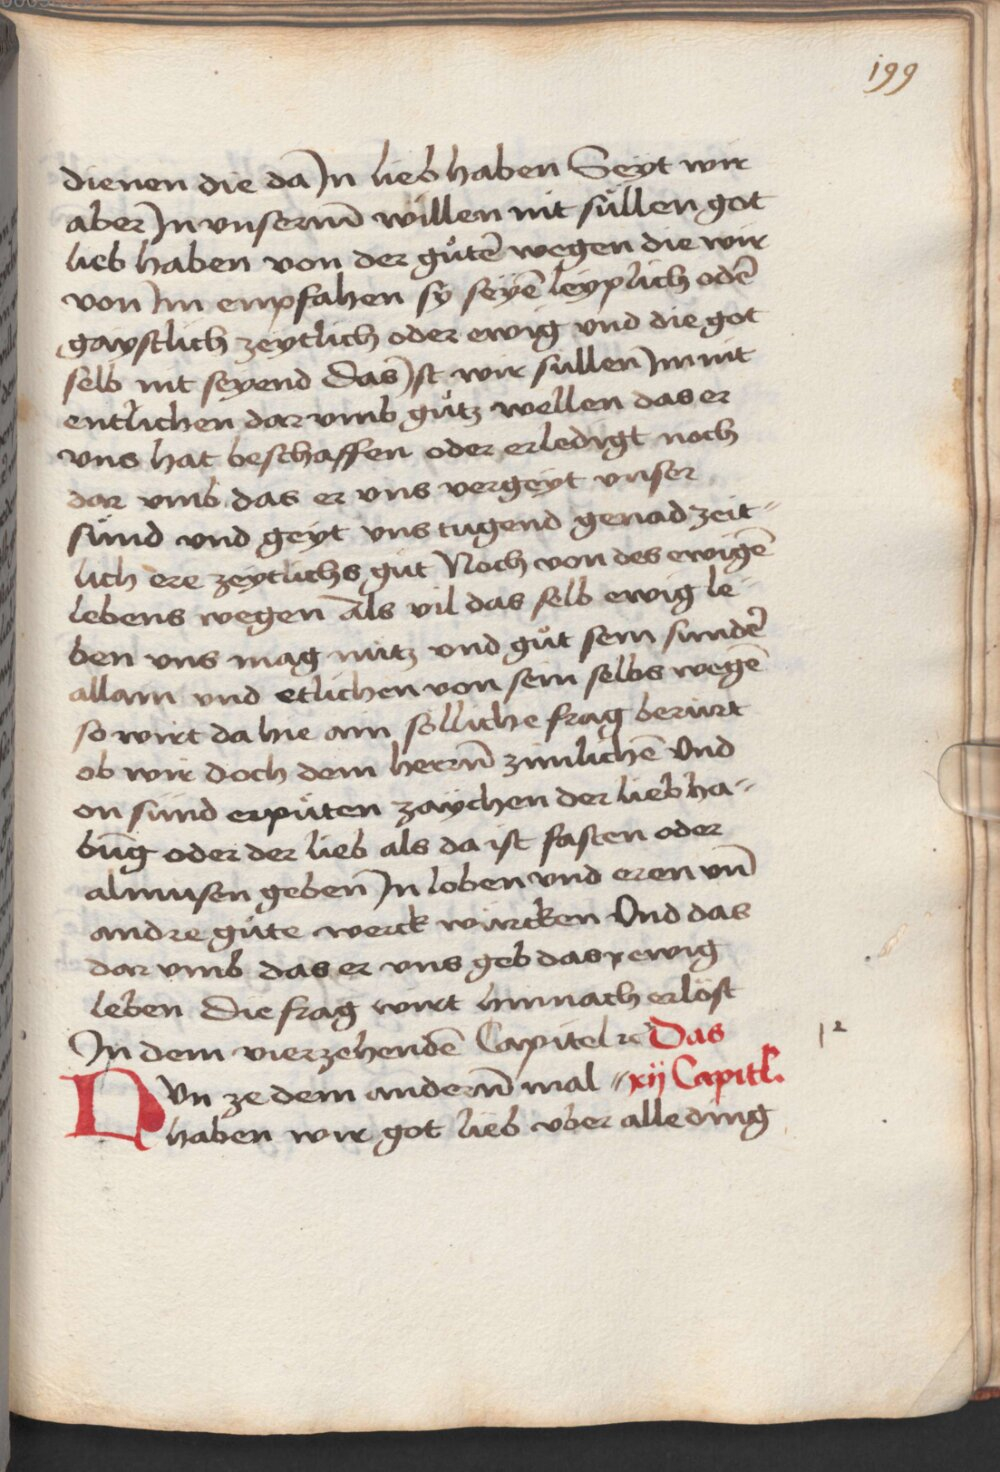 199
dienen die da Jn lieb haben Seyt wir
aber Jn vnserm̄ willen nit süllen got
lieb haben von der gůtē wegen die wir
von Jm empfahen sy seyē leyplich odē
gaystlich zeytlich oder ewig vnd die got
selb nit seyend Das Jst wir sullen Jm nit
entlichen dar vmb gůtz wellen das er
vns hat beschaffen oder erledigt noch
dar vmb das er vns vergeyt vnser
sünd vnd geyt vns tugend genad zeit-
lich ere zeytlichs gut Noch von des ewigē
lebens wegen Als vil das selb ewig le-
ben vns mag nütz vnd gůt sein sunderˀ
allain vnd etlichen von sein selbs wegē
so wirt da hie ain solliche frag berürt
ob wir doch dem herrn̄ zimlichē Vnd
on sünd erpüten zaychen der lieb ha-
būg oder der lieb als da ist fasten oder
almusen geben Jn loben vnd eren vn̄
andre gůte werck würcken Vnd das
dar vmb das er vns geb das ewig
leben Die frag wirt hinnach erlöst
Jn dem vierzehendē Capitel ꝛc Das
Nvn ze dem andern̄ mal xij Capitl.
haben wir got lieb vber alle ding
12